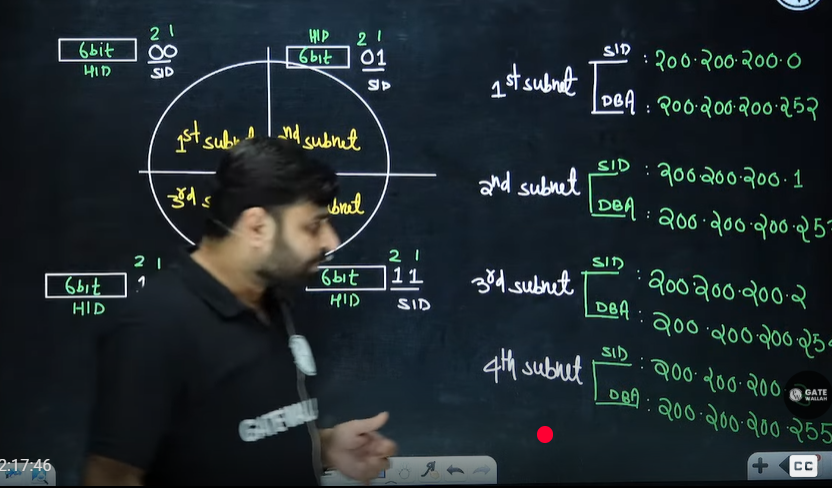 2 1
6bit 00
HID SID
HID 2 1
6bit 01
SID
1st subnet
nd subnet
3rd
bnet
2 1
6bit
HID
2 1
6bit 11
HID SID
1st subnet
SID : 200.200.200.0
DBA : 200.200.200.252
2nd subnet
SID : 200.200.200.1
DBA : 200.200.200.253
3rd subnet
SID : 200.200.200.2
DBA : 200.200.200.254
4th subnet
SID : 200.200.200.
DBA : 200.200.200.255
GATE
WALLAH
2:17:46
CC